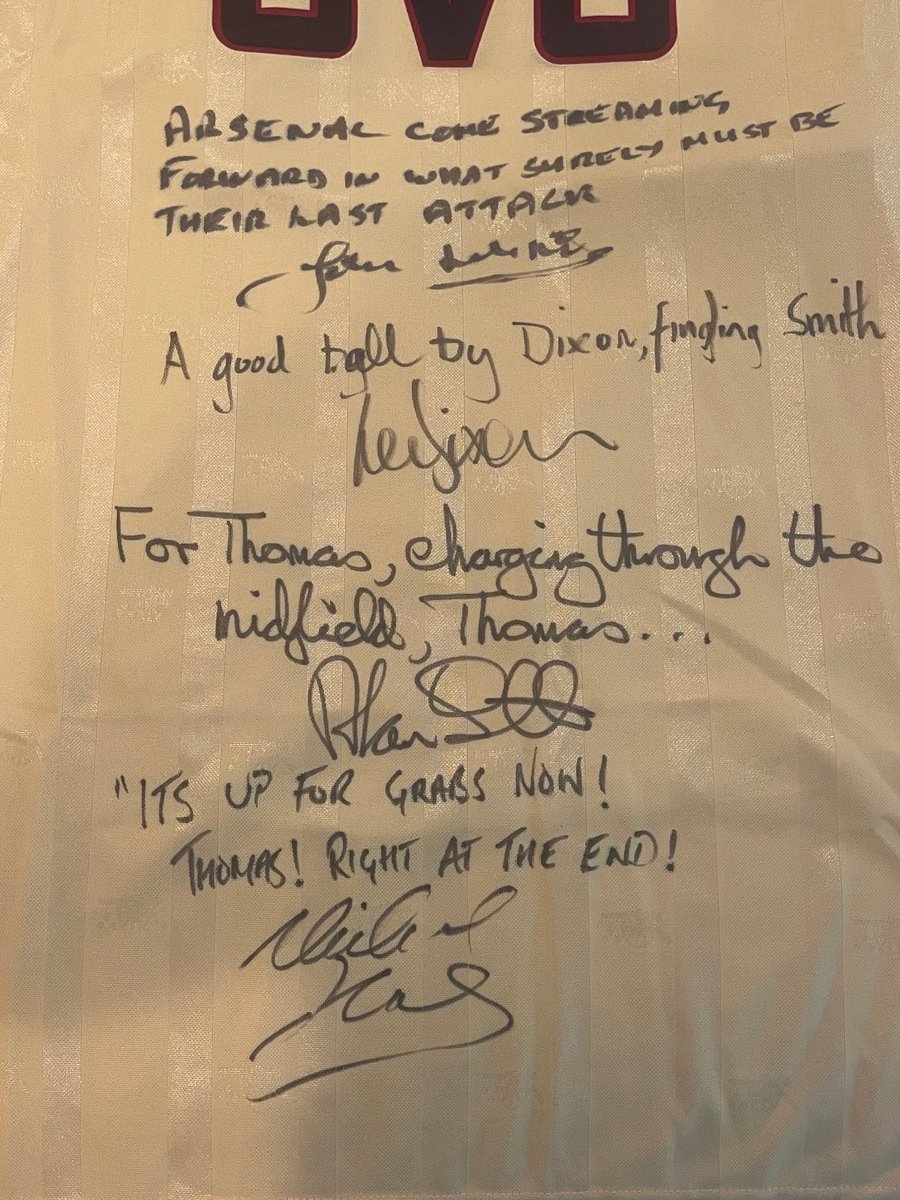 JVC
ARSENAL COME STREAMING
FORWARD IN WHAT SURELY MUST BE
THEIR LAST ATTACK
John Lukic
A good ball by Dixon, finding Smith
Lee Dixon
For Thomas, charging through the
midfield, Thomas...
Alan Smith
"ITS UP FOR GRABS NOW!
THOMAS! RIGHT AT THE END!
Michael